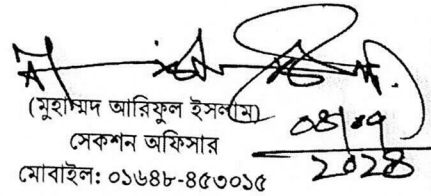 (মুহাম্মদ আরিফুল ইসলাম)
সেকশন অফিসার
মোবাইল: ০১৬৪৮-৪৫৩০১৫